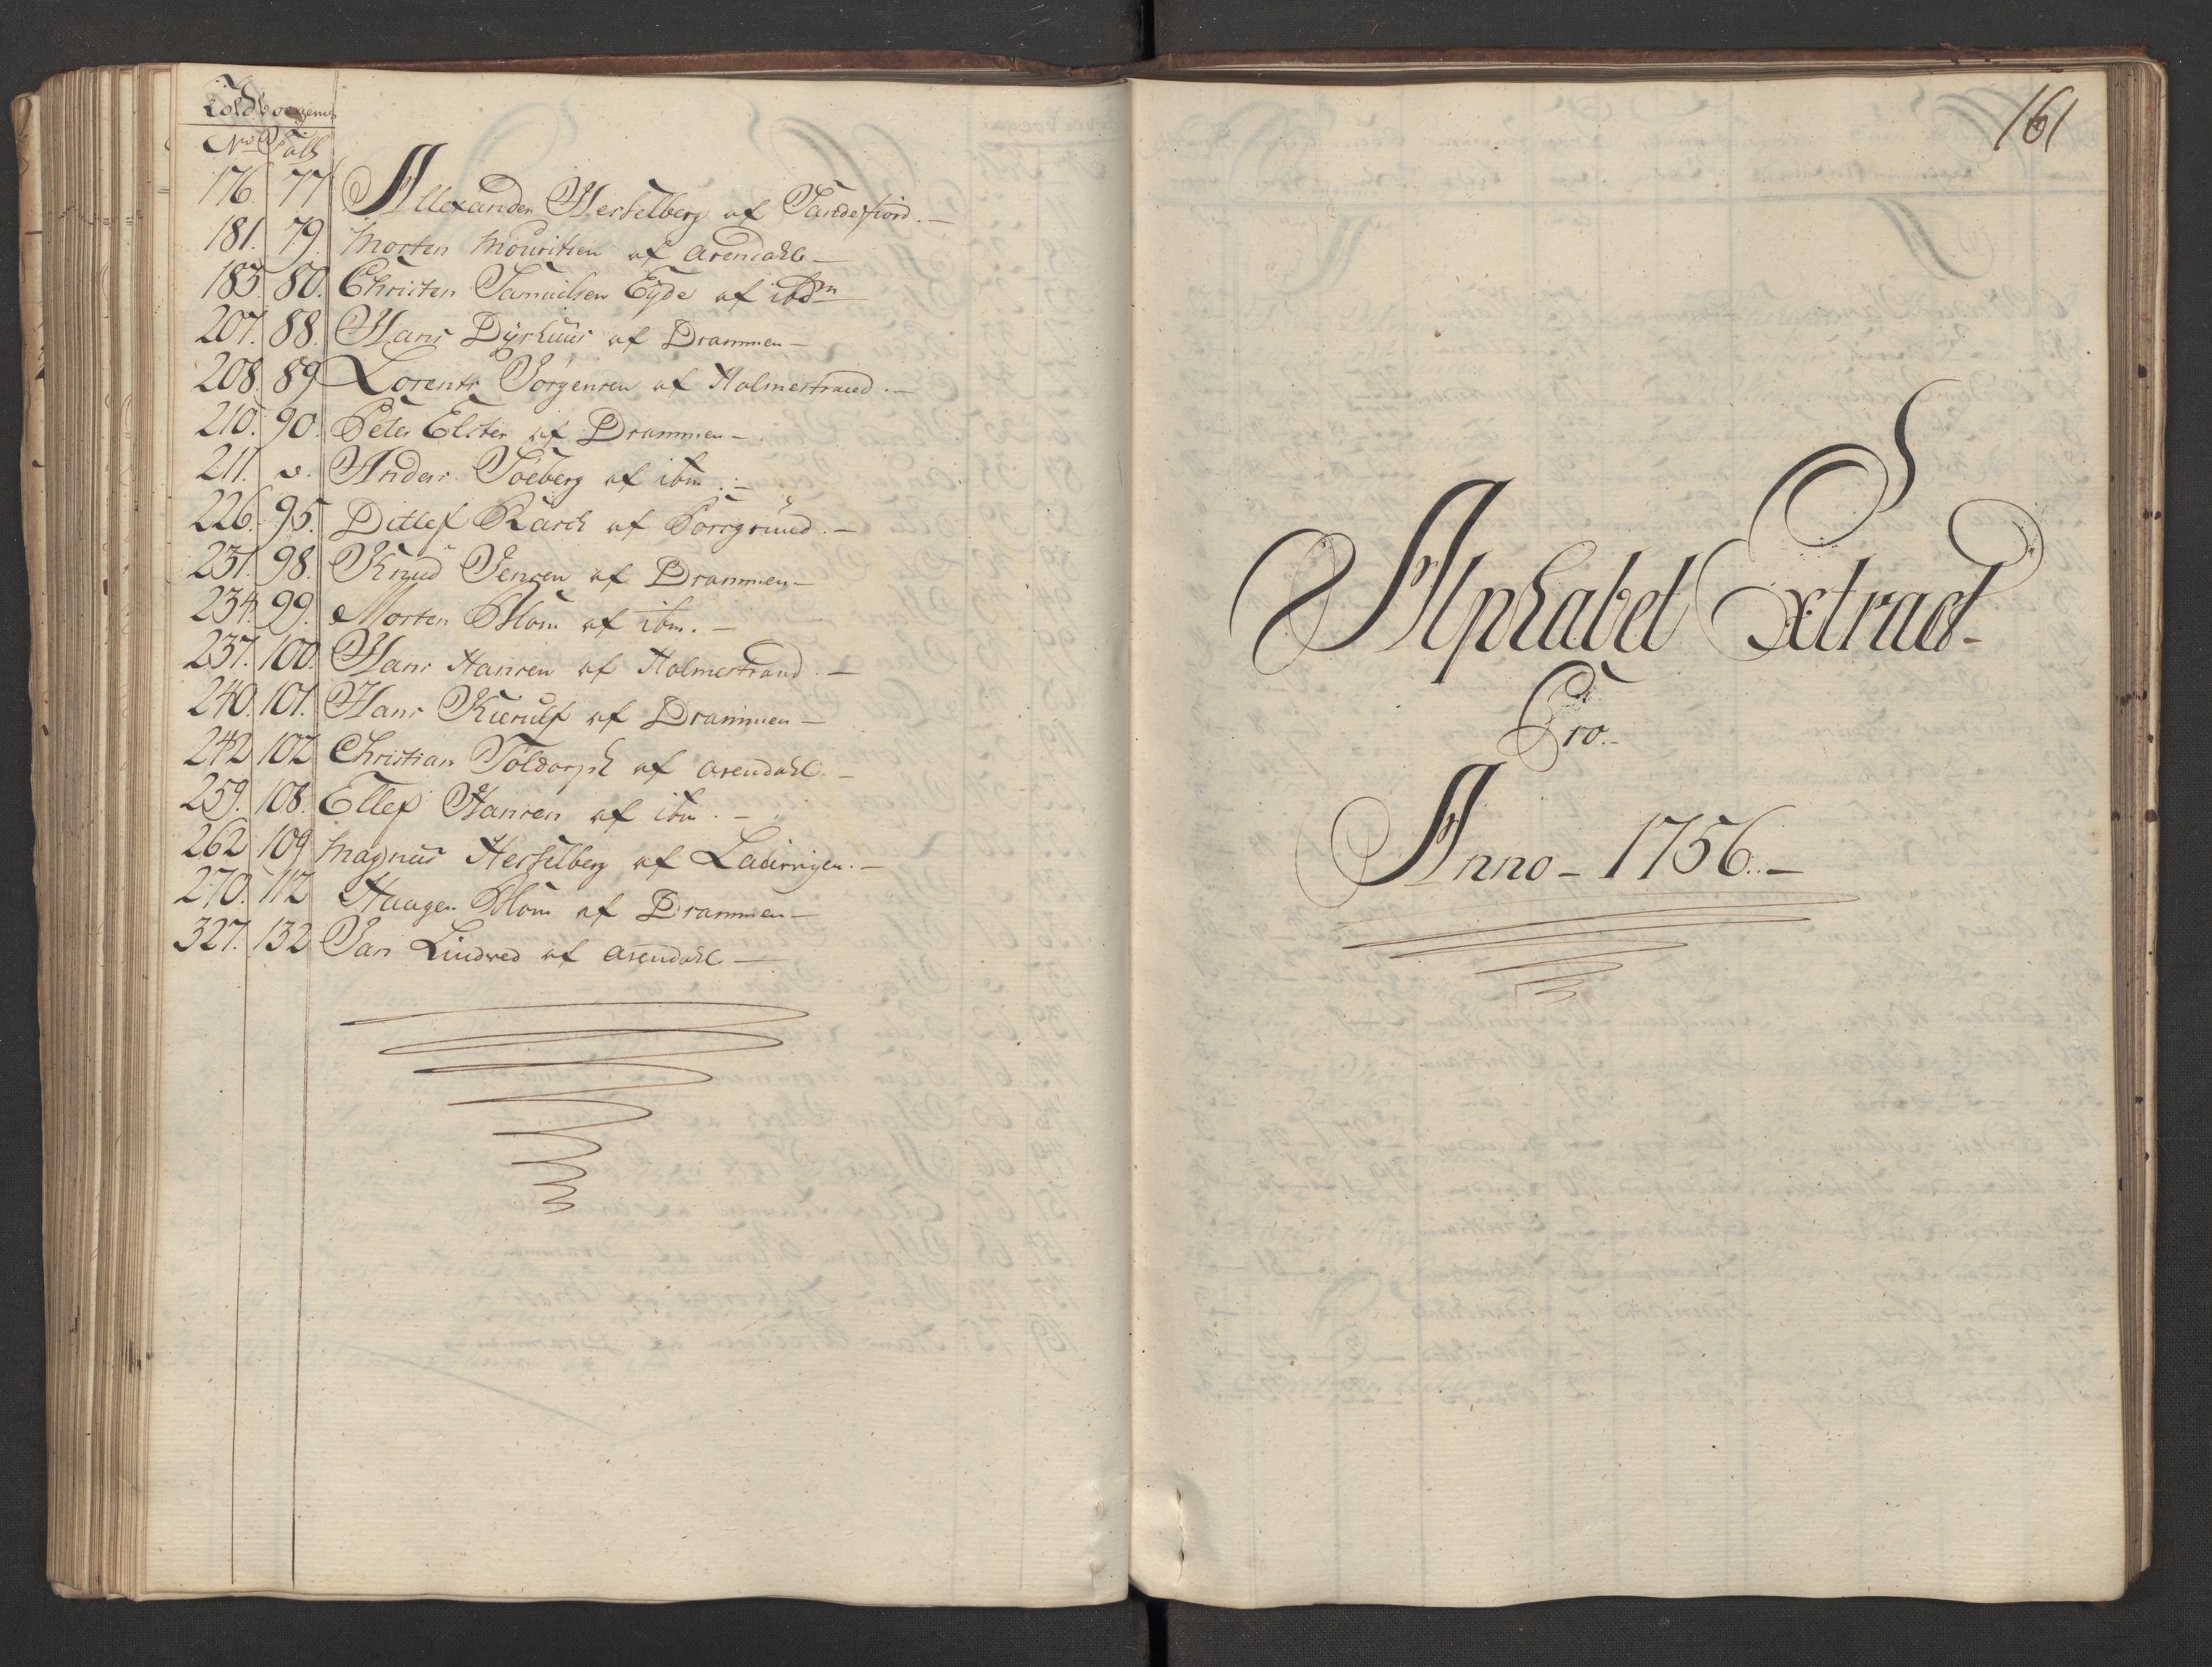 Toldboegens
No Foll
176. 77 Allexander Hesselberg af Sandefiord. —
181. 79. Morten Mouritsen af Arendahl —
183. 80. Christen Samuelsen Eyde af ibdm
207. 88. Hans Dyrhuus af Drammen —
208. 89 Lorents Jørgensen af Holmestrand. —
210. 90. Peter Elster af Drammen —
211. v. Anders Søeberg af ibm. —
226. 95. Ditlef Rasch af Porsgrund. —
231. 98. Knud Jensen af Drammen —
234. 99. Morten Blom af ibm. —
237. 100. Hans Hansen af Holmestrand. —
240. 101. Hans Kierulf af Drammen —
242 102 Christian Toldorph af Arendahl. —
259. 108. Ellef Hansen af ibm. —
262 109 Magnus Hesselberg af Laurvigen. —
270. 112 Haagen Blom af Drammen —
327. 132 Jan Lindved af Arendahl —
161
Alphabet Extract
Pro.
Anno - 1756. —